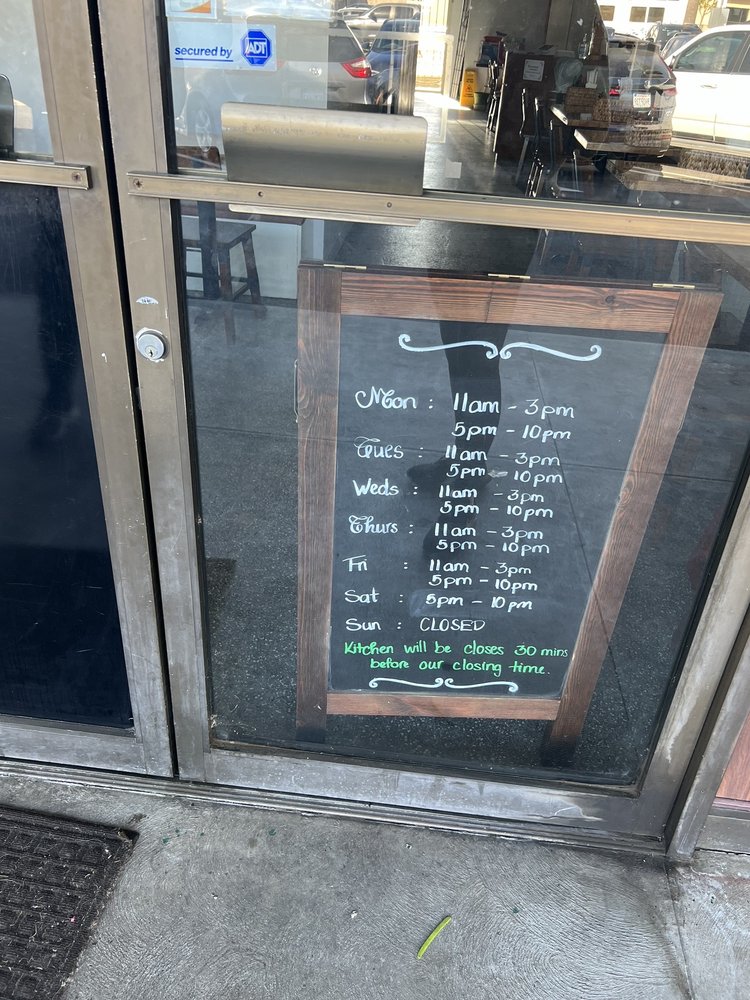 secured by ADT
Mon : 11am - 3pm
5pm - 10pm
Tues : 11am - 3pm
5pm - 10pm
Weds : 11am - 3pm
5pm - 10pm
Thurs : 11am - 3pm
5pm - 10pm
Fri : 11am - 3pm
5pm - 10pm
Sat : 5pm - 10pm
Sun : CLOSED
Kitchen will be closes 30 mins
before our closing time.